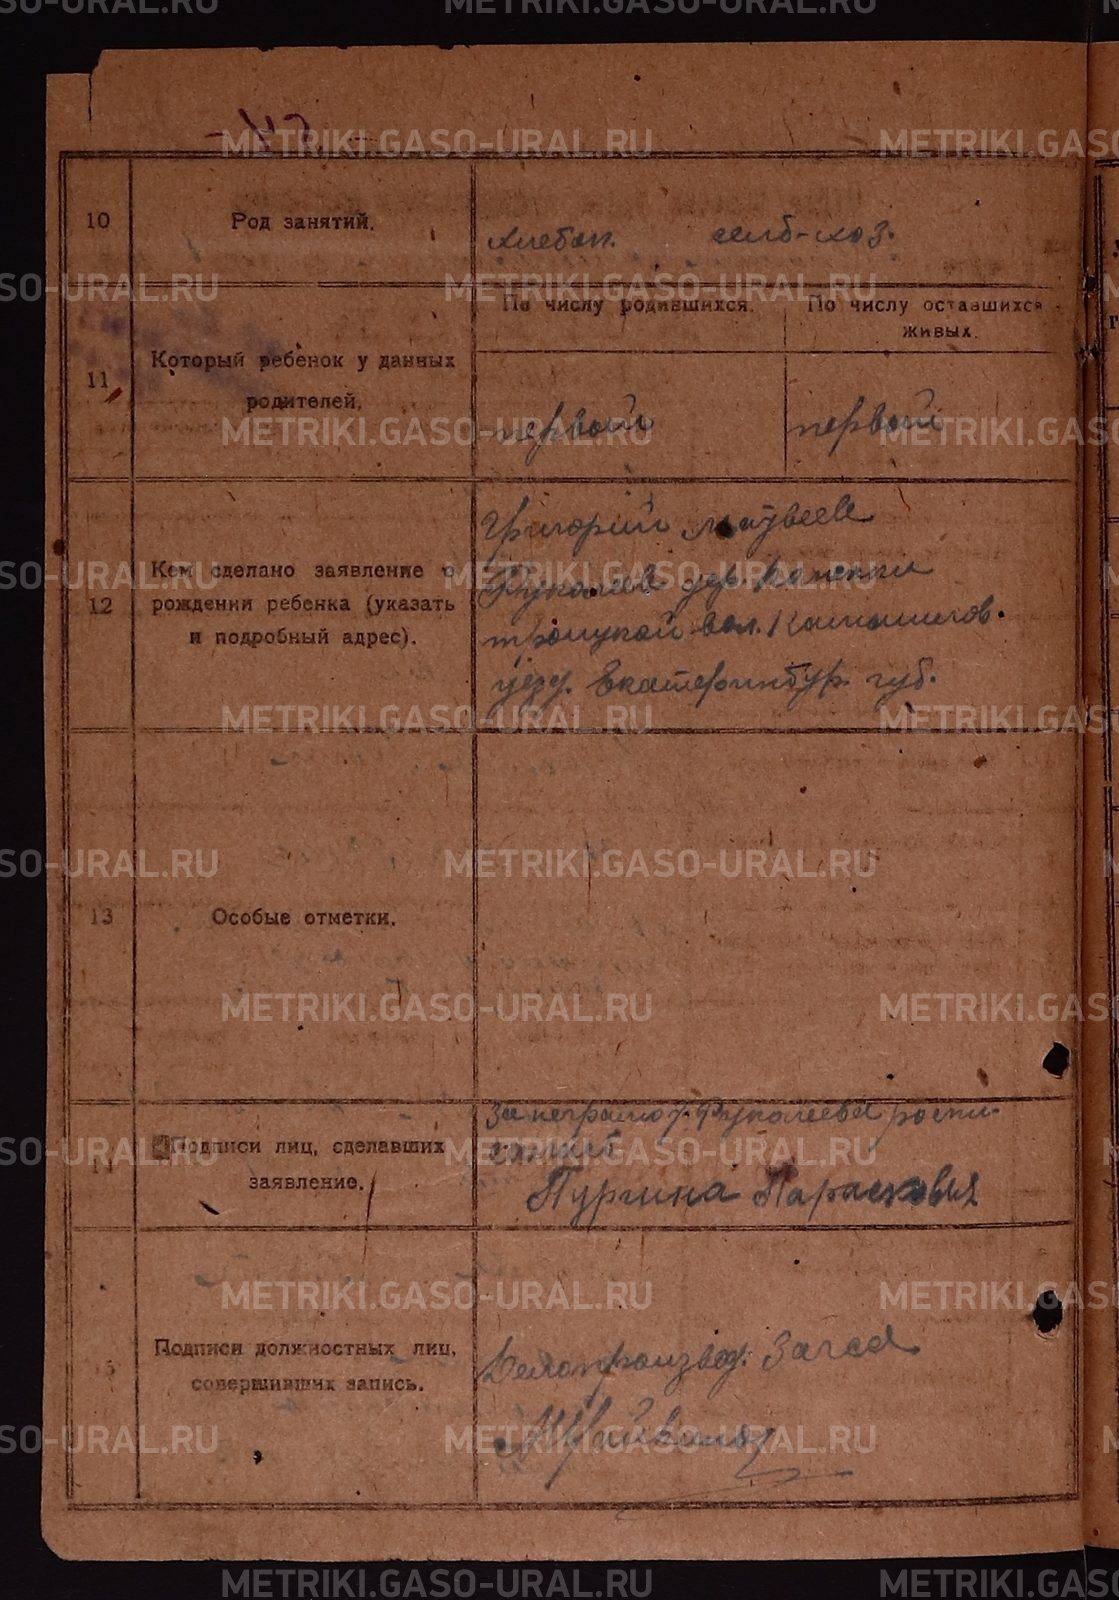 10
Род занятий.
Хлебоп. сельб-хоз.
11
Который ребенок у данных
родителей.
По числу родившихся.
По числу оставшихся
живых.
первый
первый
12
Кем сделано заявление о
рождении ребенка (указать
и подробный адрес).
Григорий Матвеев
дер.
вол. Камышлов.
уезд. Екатеринбур. губ.
13
Особые отметки.
14
Подписи лиц, сделавших
заявление.
За неграмот. роспи-
Пургина Парасковья
15
Подписи должностных лиц,
совершивших запись.
Делопроизвод. Загса
METRIKI.GASO-URAL.RU